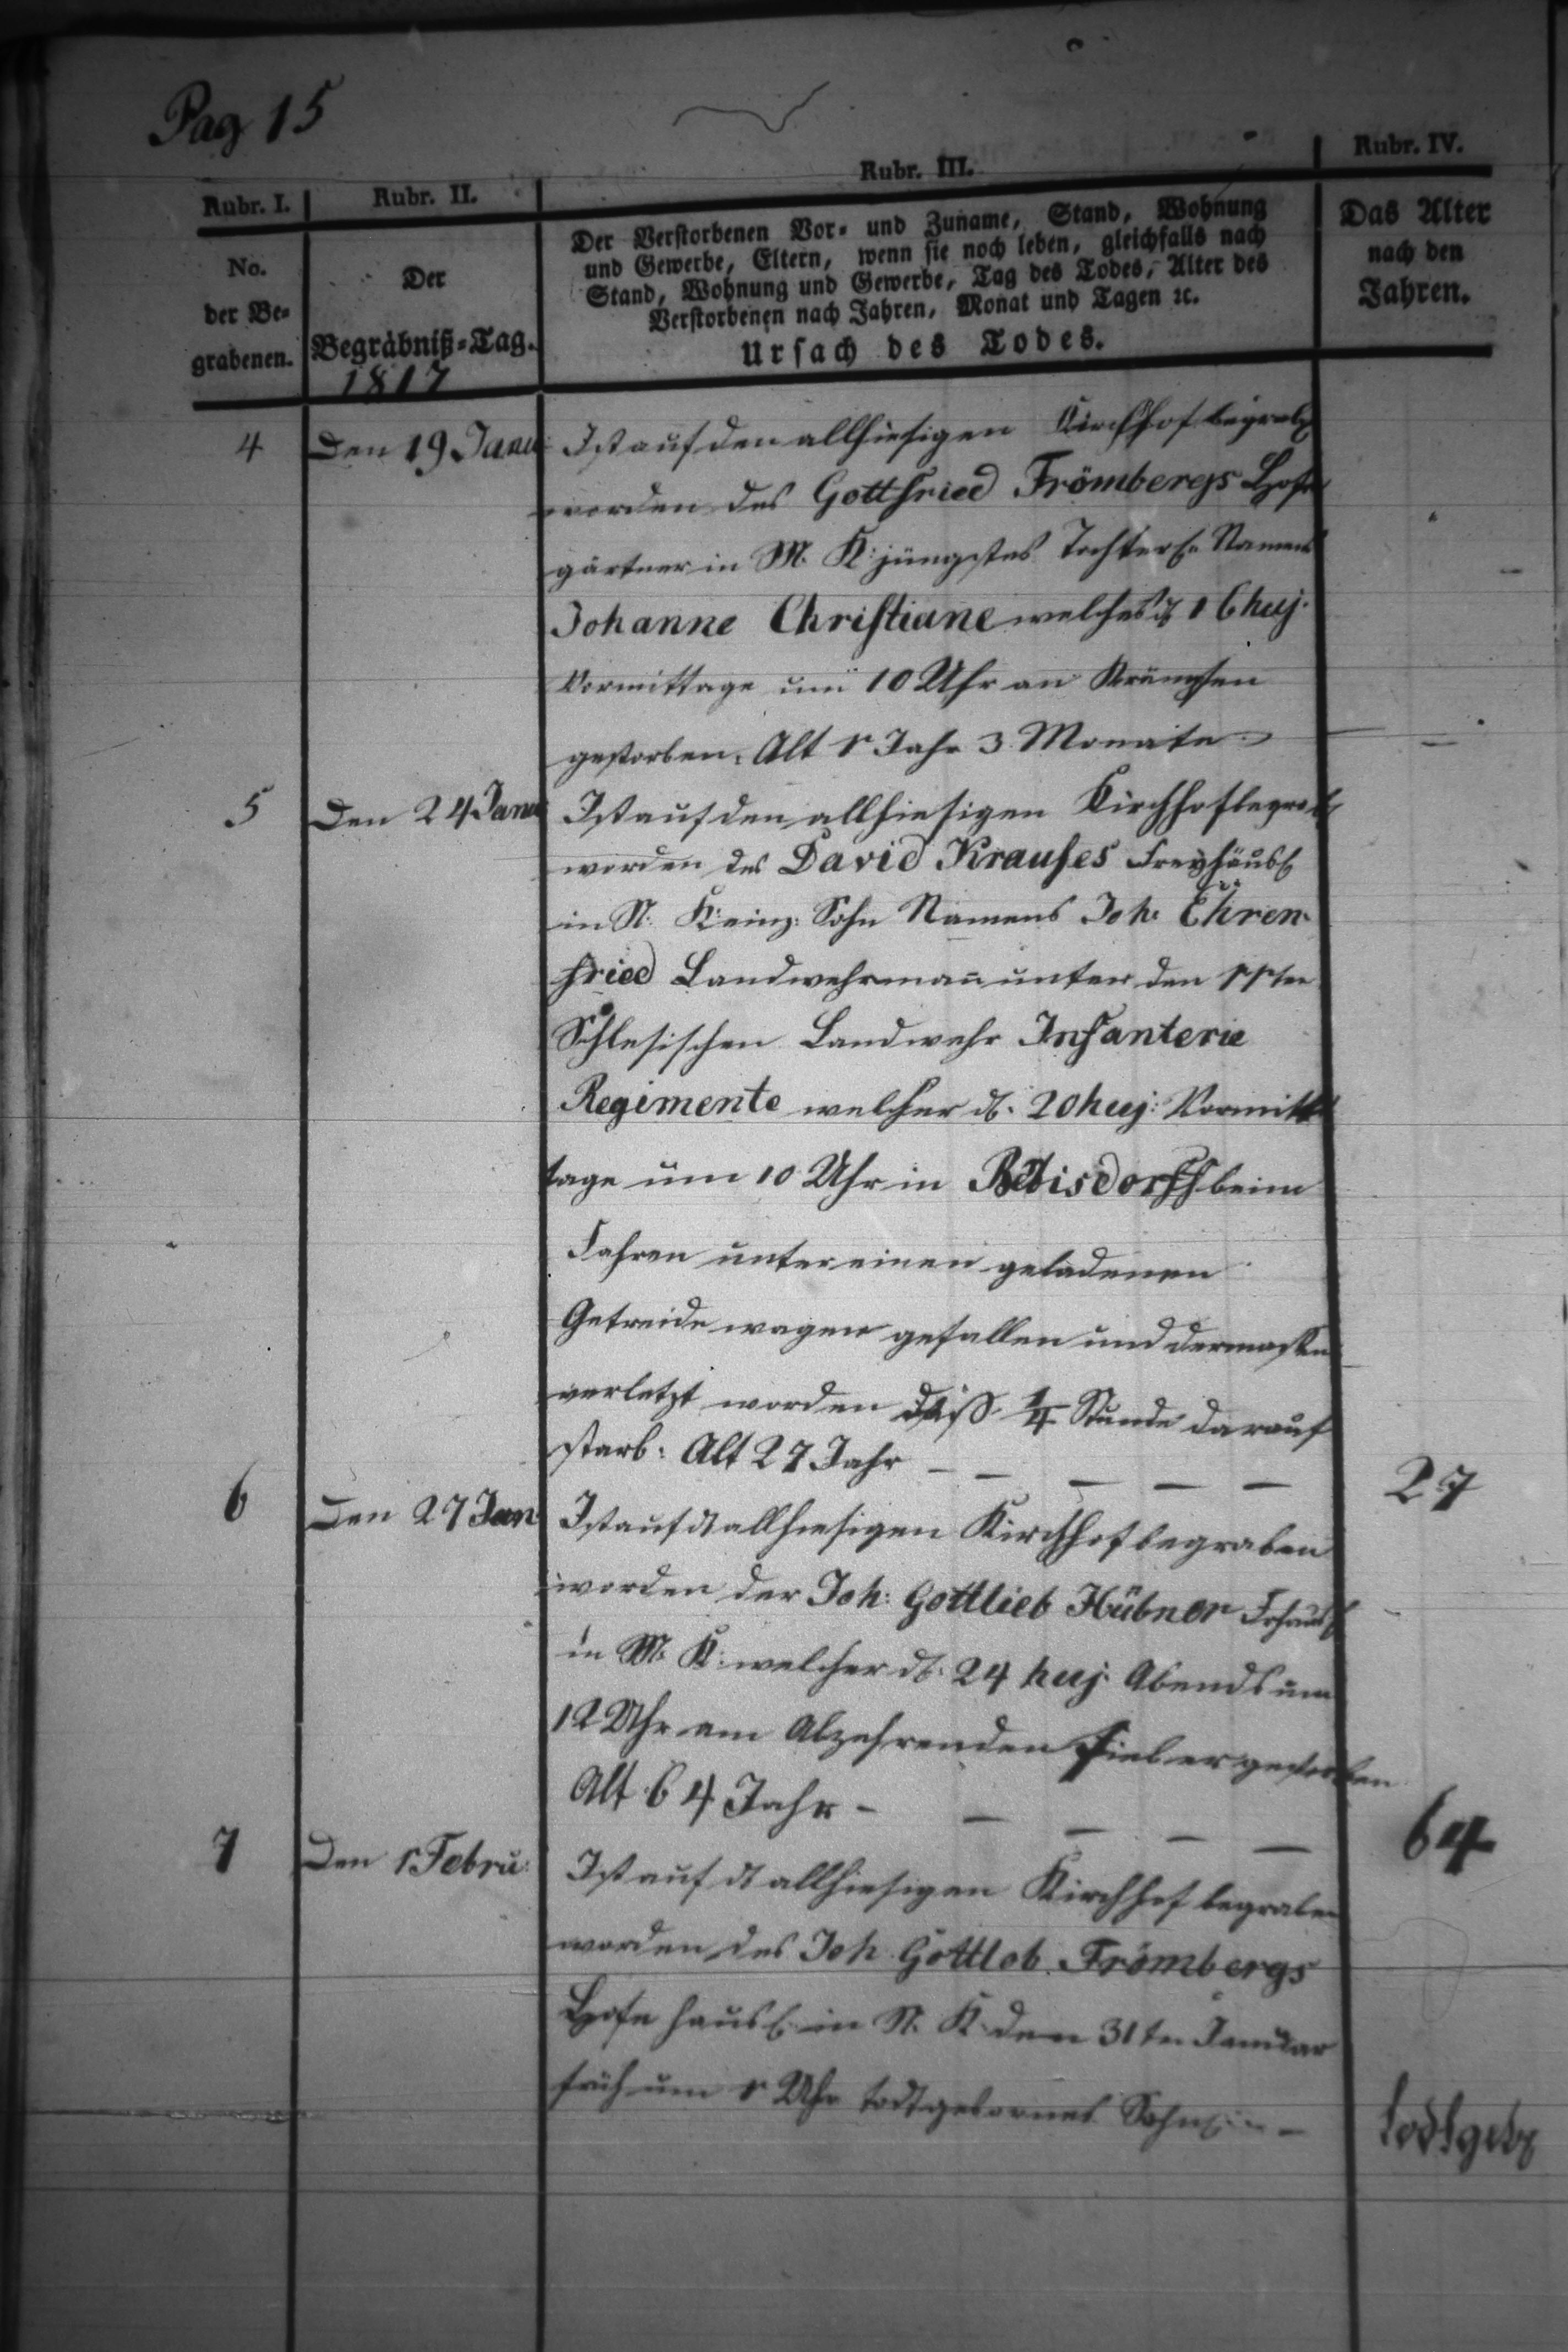 Pag 15
Rubr. I.
Rubr. II.
Rubr. III.
Rubr. IV.
No.
der Be-
grabenen.
Der
Begräbniß-Tag.
1817
Der Verstorbenen Vor- und Zuname, Stand, Wohnung
und Gewerbe, Eltern, wenn sie noch leben, gleichfalls nach
Stand, Wohnung und Gewerbe, Tag des Todes, Alter des
Verstorbenen nach Jahren, Monat und Tagen ꝛc.
Ursach des Todes.
Das Alter
nach den
Jahren.
4
Den 19 Janu
Ist auf den allhiesigen Kirchhof begrab
worden des Gottfried Frömbergs
gärtner in M. K: jüngstes Namens
Johanne Christiane welches d 16 huj.
Vormittage um 10 Uhr an Krämpfen
gestorben. Alt 1 Jahr 3 Monate
5
Den 24 Janu
Ist auf den allhiesigen Kirchhof begrab
worden des David Krauses Freyhäusl
in N. K: einz: Sohn Namens Joh: Ehren-
fried Landwehrmann unter den 11ten
Schlesischen Landwehr Infanterie
Regimente welcher d. 20 huj: Vormit
tage um 10 Uhr in beim
Fahren unter einen geladenen
Getreide wagen gefallen und dermassen
verletzt worden 1/4 Stunde darauf
starb: Alt 27 Jahr – – – – –
27
6
Den 27 Jan
Ist auf d allhiesigen Kirchhof begraben
worden der Joh: Gottlieb Hübner
in M. K: welcher d. 24 huj: Abends um
12 Uhr am Abzehrenden Fieber gestorben
Alt 64 Jahr – – – – –
64
7
Den 1 Febru:
Ist auf d allhiesigen Kirchhof begraben
worden des Joh. Gottlob Frömbergs
häusl. in N. K. den 31ten Januar
früh um 1 Uhr todtgebornes Söhnl. –
todtgeb